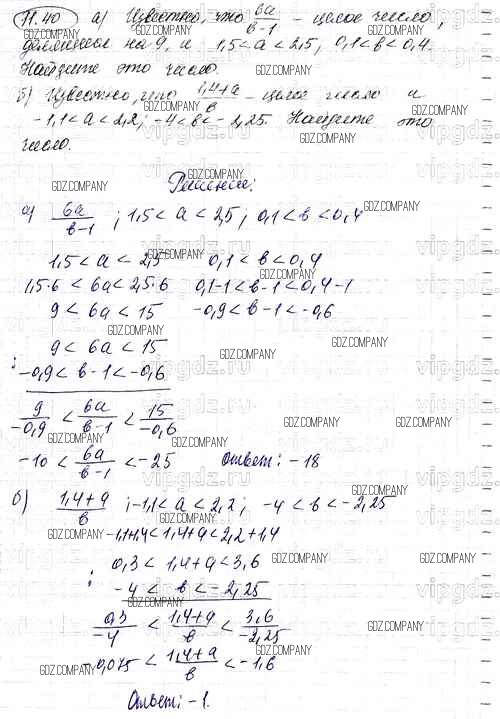 11.40 а) Известно, что 6a/(в-1) - целое число,
делящееся на 9, и 1,5<a<2,5, 0,1<в<0,4.
Найдите это число.
б) Известно, что (1,4+a)/в - целое число и
-1,1<a<2,2; -4<в<-2,25. Найдите это
число.
Решение:
а) 6a/(в-1) ; 1,5<a<2,5; 0,1<в<0,4
1,5<a<2,5 0,1<в<0,4
1,5·6<6a<2,5·6 0,1-1<в-1<0,4-1
9<6a<15 -0,9<в-1<-0,6
9<6a<15
: -0,9<в-1<-0,6
9/-0,9 < 6a/(в-1) < 15/-0,6
-10 < 6a/(в-1) < -25 Ответ: -18
б) (1,4+a)/в ; -1,1<a<2,2; -4<в<-2,25
-1,1+1,4<1,4+a<2,2+1,4
0,3<1,4+a<3,6
: -4<в<-2,25
0,3/-4 < (1,4+a)/в < 3,6/-2,25
-0,075 < (1,4+a)/в < -1,6
Ответ: -1.
GDZ.COMPANY
vipgdz.ru